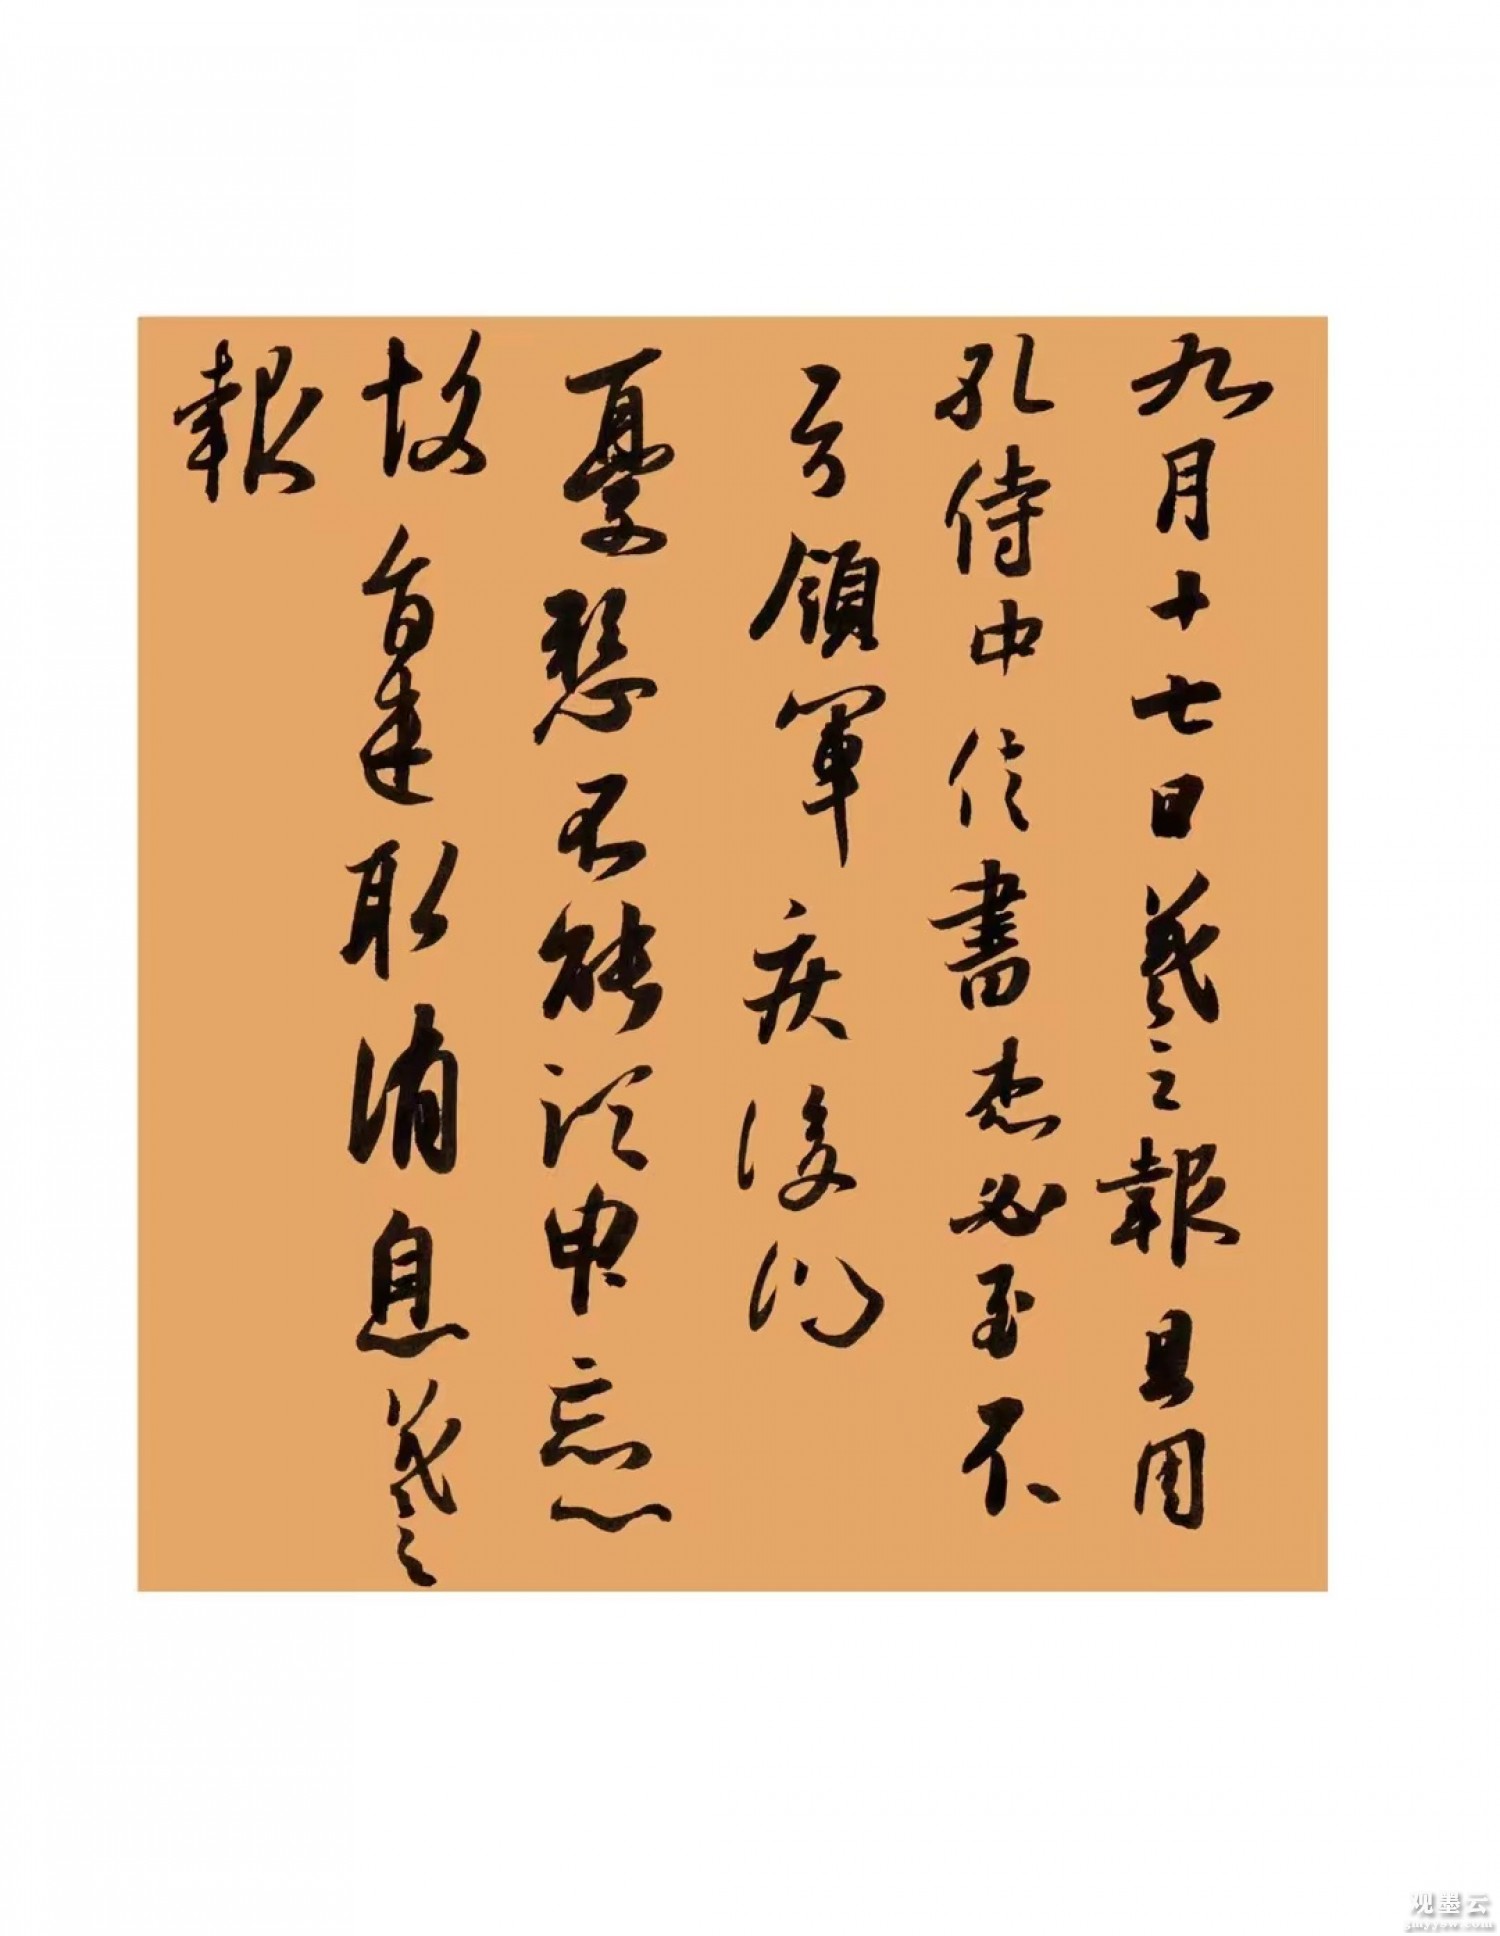 九月十七日羲之報且因
孔侍中信書想必至不
知領軍疾後問
憂懸不能須臾忘心
故旨遣取消息羲之
報
观墨云
gmyyow.com